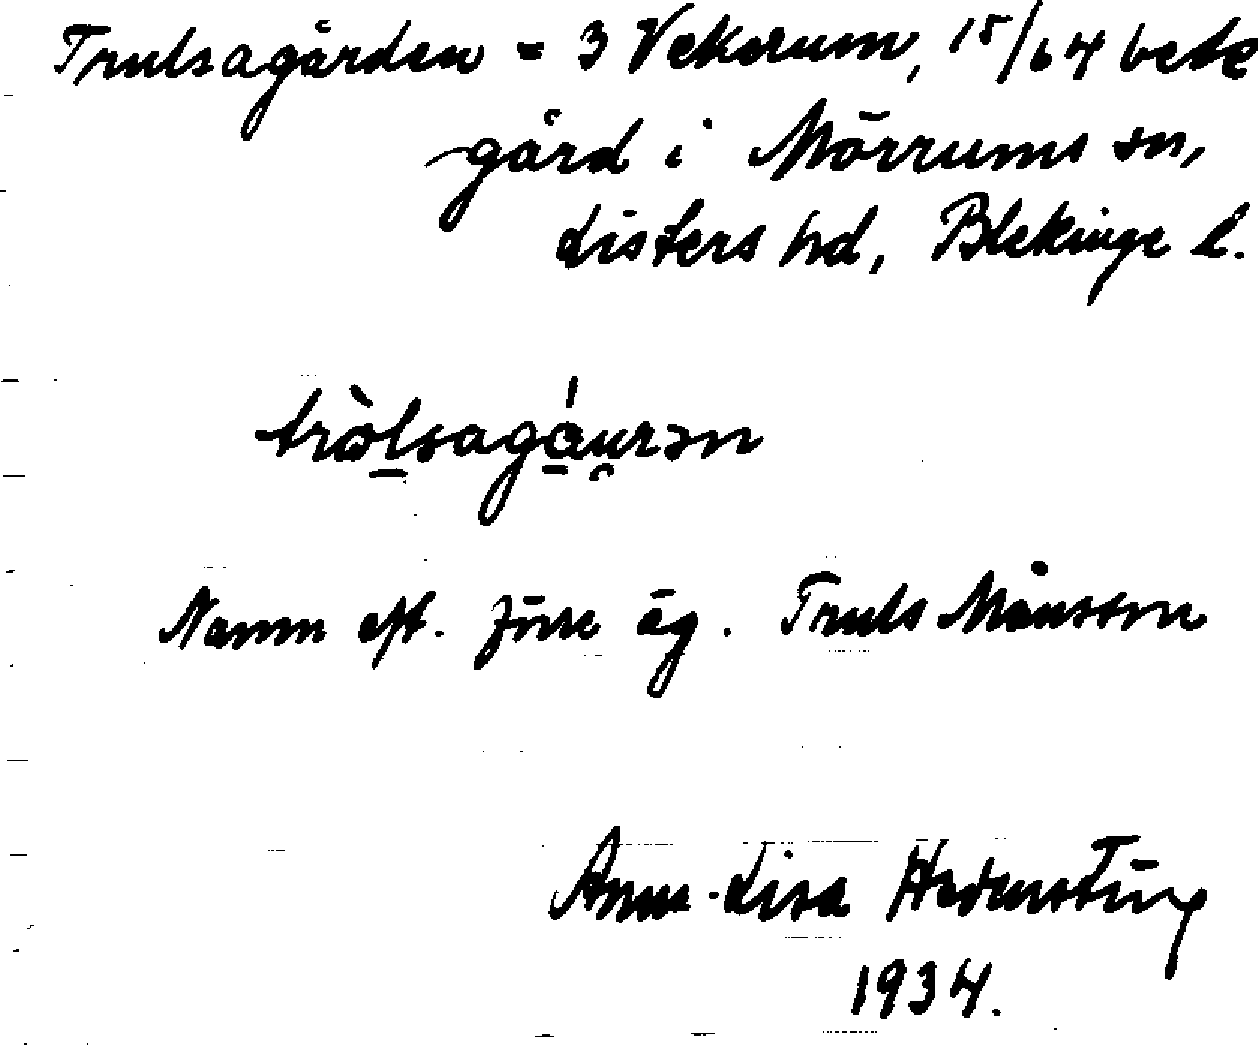 Trulsagården = 3 Vekerum, 15/64 bebt
gård i Mörrums sn,
Listers hd, Blekinge l.
trò̱lsagá̱u̯rən
Namn eft. förre äg. Truls Månsson
Anna-Lisa
1934.